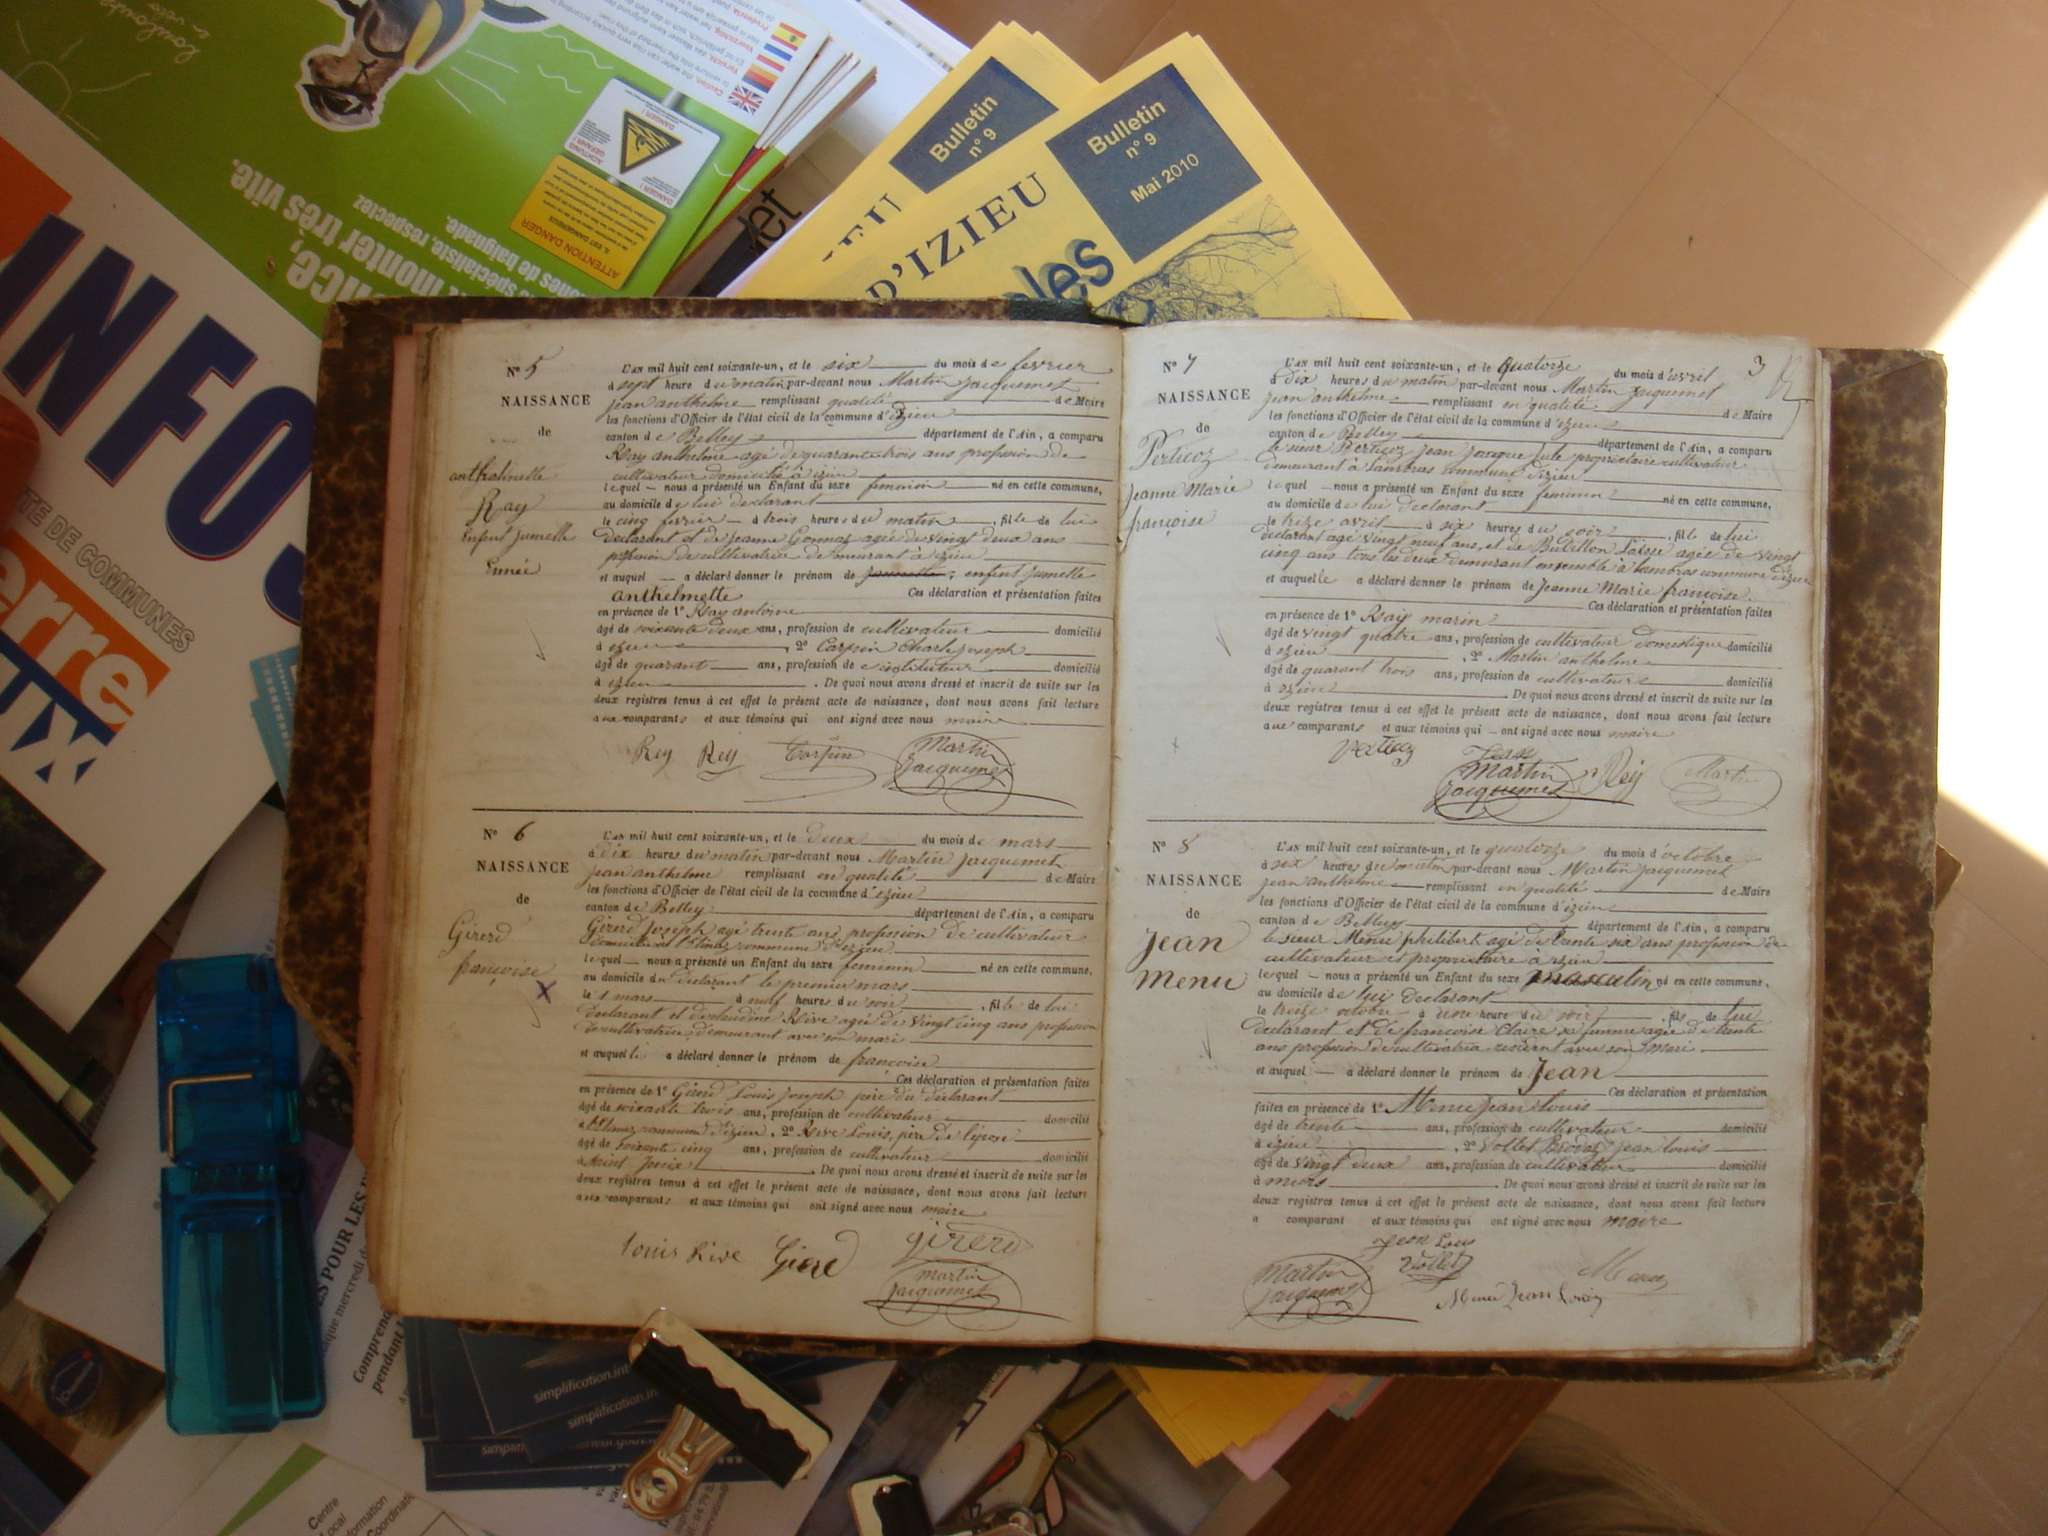 INFOS
TE DE COMMUNES
erre
UX
monter très vite.
spécialiste, respectez
zones de baignade.
ATTENTION DANGER
DANGER !
ACHTUNG GEFAHR
Bulletin
n° 9
Bulletin
n° 9
Mai 2010
D'IZIEU
N° 5
NAISSANCE
de
anthelmette
Ray
Enfant jumelle
L'an mil huit cent soixante-un, et le six du mois de fevrier
à sept heure du matin par-devant nous Martin Jacquemet
jean anthelme remplissant qualité de Maire
les fonctions d'Officier de l'état civil de la commune d'izieu
canton de Belley département de l'Ain, a comparu
Ray anthelme agé de quarante trois ans profession de
cultivateur domicilié à izieu
lequel nous a présenté un Enfant du sexe feminin né en cette commune,
au domicile de lui declarant
le cinq fevrier à trois heures du matin, fille de lui
declarant et de jeanne Gonnaz agée de vingt deux ans
de cultivateur demeurant à izieu
et auquel a déclaré donner le prénom de enfant jumelle
anthelmette Ces déclaration et présentation faites
en présence de 1° Ray antoine
âgé de soixante deux ans, profession de cultivateur domicilié
à izieu, 2° Carpin Charle joseph
âgé de quarant ans, profession de instituteur domicilié
à izieu. De quoi nous avons dressé et inscrit de suite sur les
deux registres tenus à cet effet le présent acte de naissance, dont nous avons fait lecture
aux comparants et aux témoins qui ont signé avec nous maire
Rey Rey Carpin Martin
Jacquemet
N° 6
NAISSANCE
de
Girerd
françoise
L'an mil huit cent soixante-un, et le deux du mois de mars
à dix heures du matin par-devant nous Martin Jacquemet
jean anthelme remplissant en qualité de Maire
les fonctions d'Officier de l'état civil de la commune d'izieu
canton de Belley département de l'Ain, a comparu
Girerd Joseph agé trente ans profession de cultivateur
commune d'izieu
lequel nous a présenté un Enfant du sexe feminin né en cette commune,
au domicile du declarant le premier mars
le 1 mars à neuf heures du soir, fille de lui
declarant et de claudine Rive agée de vingt cinq ans profession
de cultivateur demeurant avec son mari
et auquel a déclaré donner le prénom de françoise
Ces déclaration et présentation faites
en présence de 1° Girerd Louis Joseph père du déclarant
âgé de soixante trois ans, profession de cultivateur domicilié
commune d'izieu, 2° Rive Louis, père de l'épouse
âgé de soixante cinq ans, profession de cultivateur domicilié
à. De quoi nous avons dressé et inscrit de suite sur les
deux registres tenus à cet effet le présent acte de naissance, dont nous avons fait lecture
aux comparants et aux témoins qui ont signé avec nous maire
Louis Rive Girerd girerd
Martin
Jacquemet
3
N° 7
NAISSANCE
de
Perticoz
Jeanne Marie
françoise
L'an mil huit cent soixante-un, et le quatorze du mois d'avril
à dix heures du matin par-devant nous Martin Jacquemet
jean anthelme remplissant en qualité de Maire
les fonctions d'Officier de l'état civil de la commune d'izieu
canton de Belley département de l'Ain, a comparu
le sieur Perticoz jean jacque propriétaire cultivateur
demeurant à Lambras commune d'izieu
lequel nous a présenté un Enfant du sexe feminin né en cette commune,
au domicile de lui declarant
le treize avril à six heures du soir, fille de lui
declarant agé vingt neuf ans, et de agée de vingt
cinq ans tous les deux demeurant ensemble à Lambras commune d'izieu
et auquel a déclaré donner le prénom de Jeanne Marie françoise.
Ces déclaration et présentation faites
en présence de 1° Ray marin
âgé de vingt quatre ans, profession de cultivateur domestique domicilié
à izieu, 2° Martin anthelme
âgé de quarant trois ans, profession de cultivateur domicilié
à izieu. De quoi nous avons dressé et inscrit de suite sur les
deux registres tenus à cet effet le présent acte de naissance, dont nous avons fait lecture
aux comparants et aux témoins qui ont signé avec nous maire
Perticoz Jean
Martin
Jacquemet Rey Martin
N° 8
NAISSANCE
de
Jean
Menu
L'an mil huit cent soixante-un, et le quatorze du mois d'octobre
à six heures du matin par-devant nous Martin Jacquemet
jean anthelme remplissant en qualité de Maire
les fonctions d'Officier de l'état civil de la commune d'izieu
canton de Belley département de l'Ain, a comparu
le sieur Menu philibert agé de trente six ans profession de
cultivateur et propriétaire à izieu
lequel nous a présenté un Enfant du sexe masculin né en cette commune,
au domicile de lui declarant
le treize octobre à une heure du soir, fils de lui
declarant et de francoise Claire sa femme agée de trente
ans profession de cultivatrice residant avec son mari
et auquel a déclaré donner le prénom de Jean
Ces déclaration et présentation
faites en présence de 1° Menu jean louis
âgé de trente ans, profession de cultivateur domicilié
à izieu, 2° Vollet jean louis
âgé de vingt deux ans, profession de cultivateur domicilié
à murs. De quoi nous avons dressé et inscrit de suite sur les
deux registres tenus à cet effet le présent acte de naissance, dont nous avons fait lecture
a comparant et aux témoins qui ont signé avec nous maire
Jean Louis
Vollet
Martin
Jacquemet
Menu
Menu Jean Louis
S POUR LES
que mercredi d
Comprend
pendant l
simplification.int
simplification.int
Centre
Local
Information
Coordinati